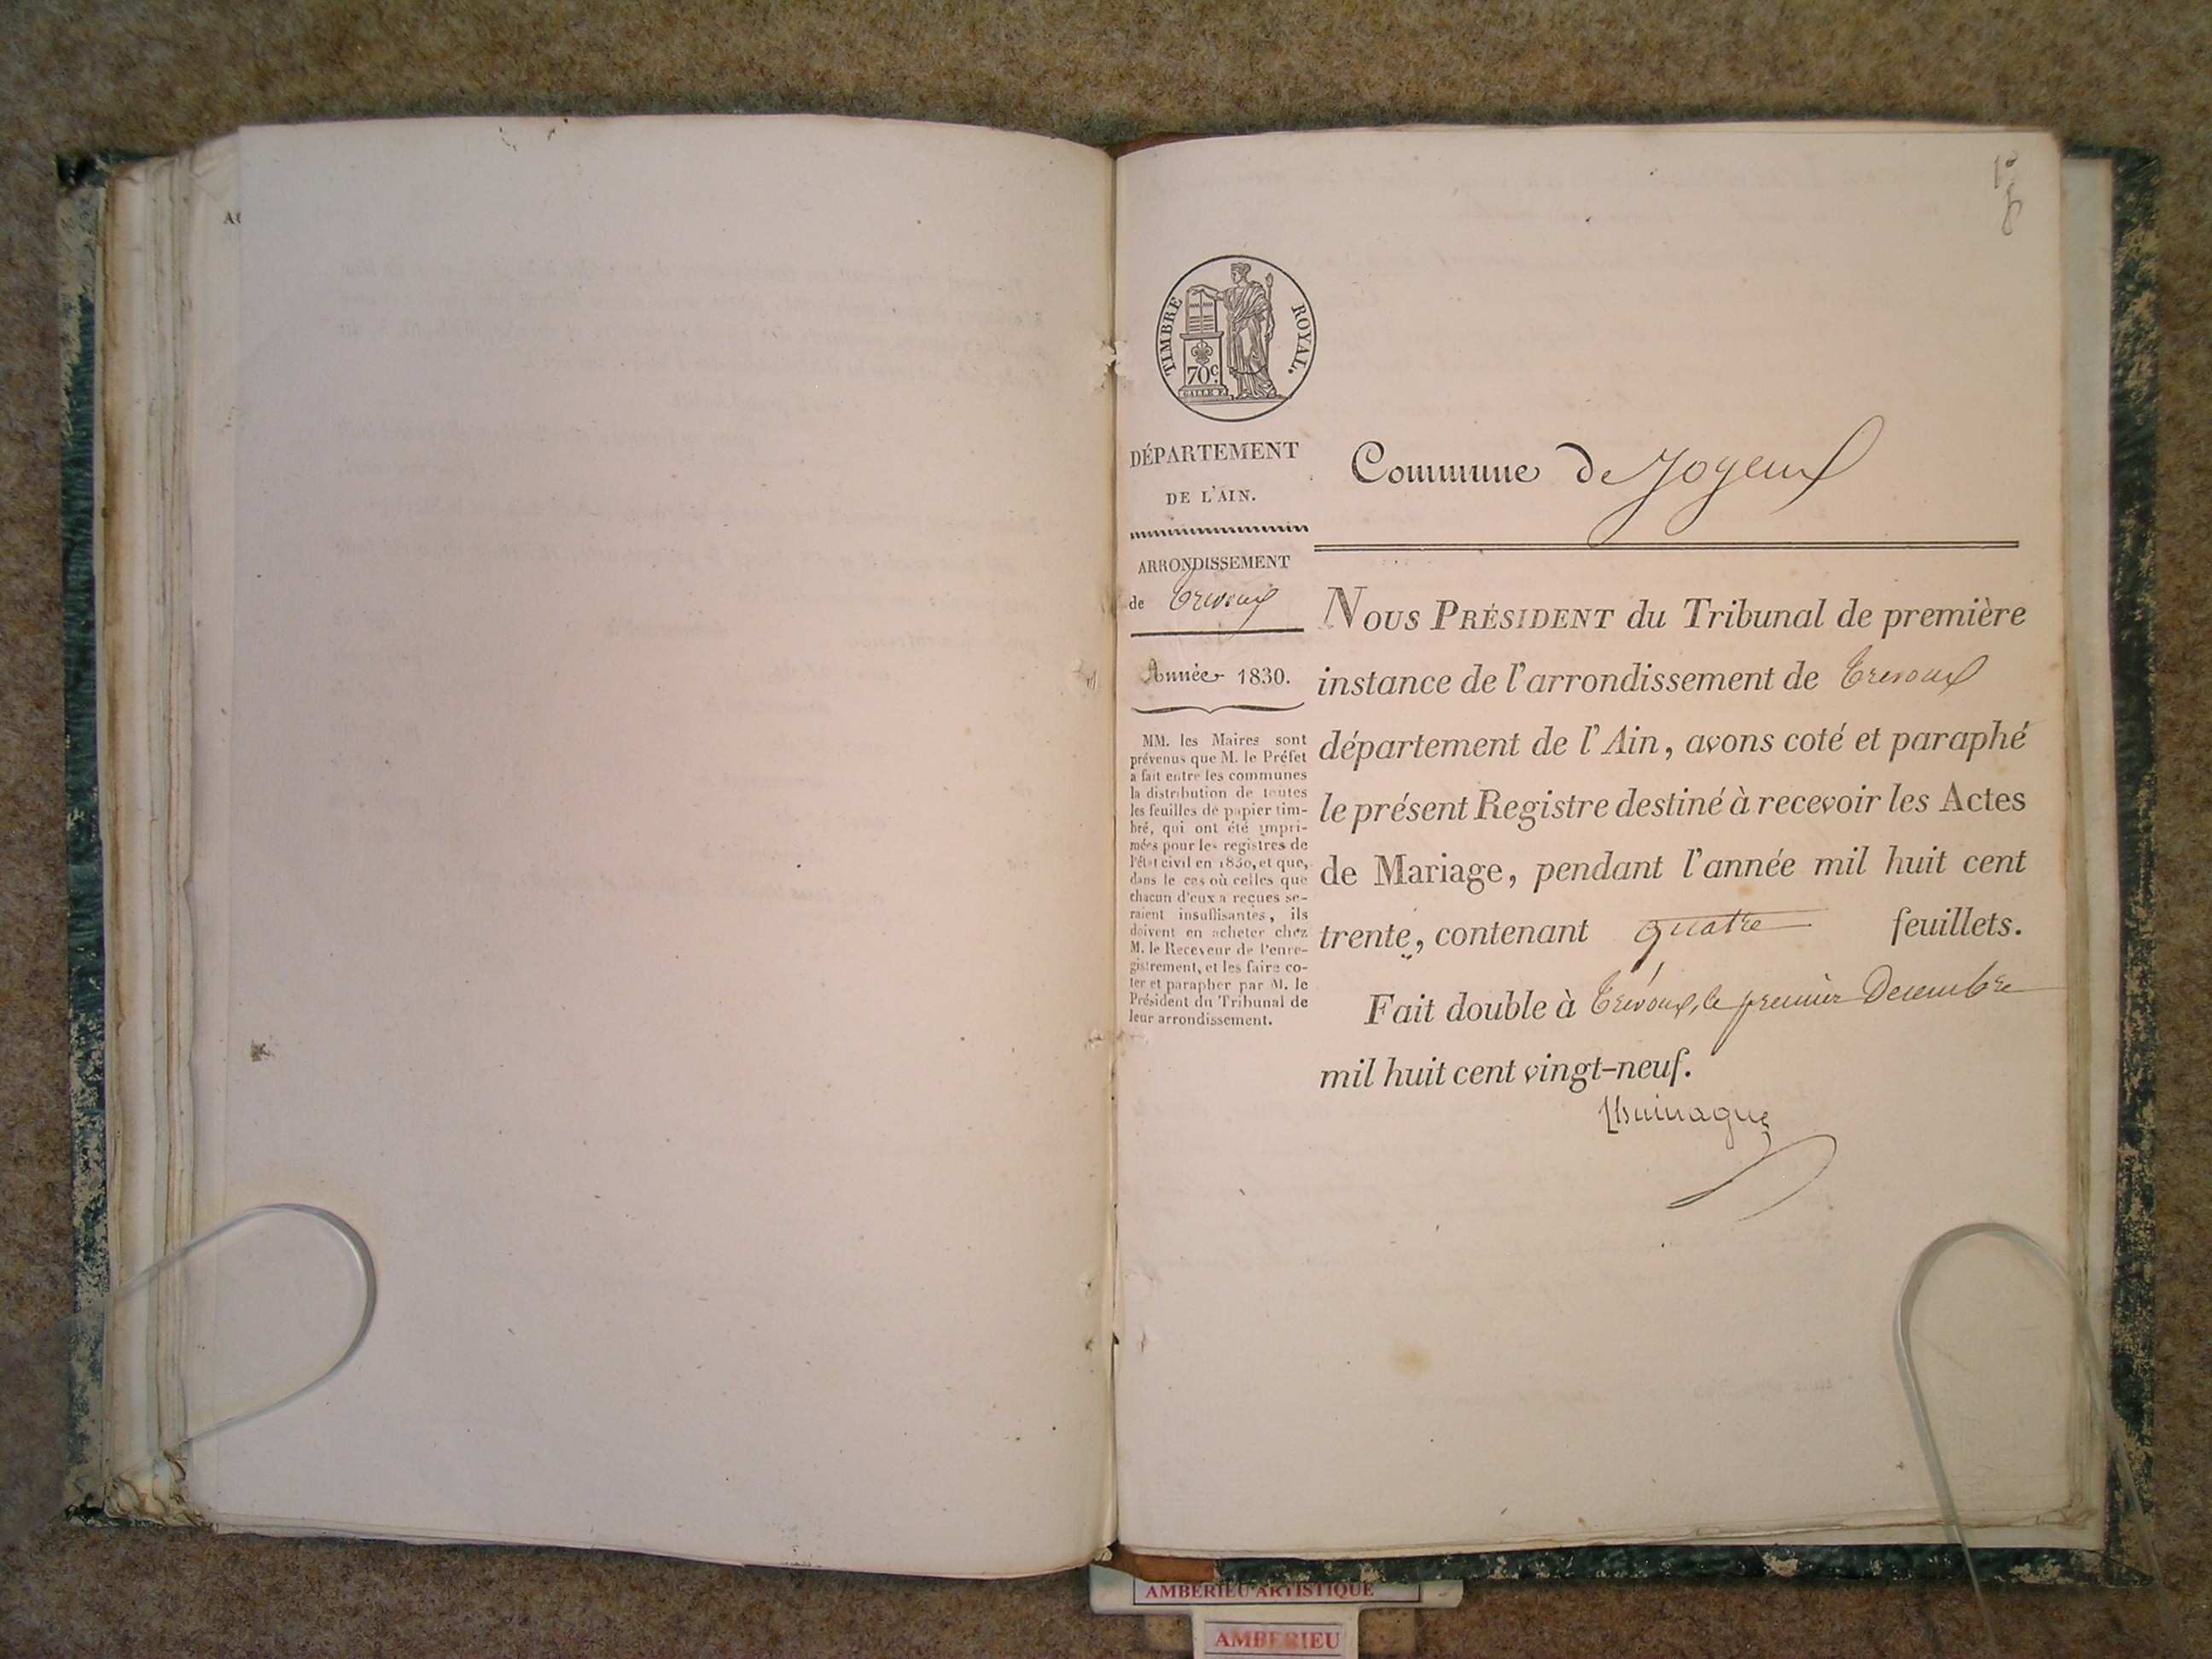 1er
TIMBRE ROYAL.
70c.
GALLE F.
DÉPARTEMENT
DE L'AIN.
ARRONDISSEMENT
de Trevoux
Année 1830.
MM. les Maires sont
prévenus que M. le Préfet
a fait entre les communes
la distribution de toutes
les feuilles de papier tim-
bré, qui ont été impri-
mées pour les registres de
l'état civil en 1830, et que,
dans le cas où celles que
chacun d'eux a reçues se-
raient insuffisantes, ils
doivent en acheter chez
M. le Receveur de l'enre-
gistrement, et les faire co-
ter et parapher par M. le
Président du Tribunal de
leur arrondissement.
Commune de Joyeux
NOUS PRÉSIDENT du Tribunal de première
instance de l'arrondissement de Trevoux
département de l'Ain, avons coté et paraphé
le présent Registre destiné à recevoir les Actes
de Mariage, pendant l'année mil huit cent
trente, contenant quatre feuillets.
Fait double à Trévoux, le premier Decembre
mil huit cent vingt-neuf.
AMBERIEU ARTISTIQUE
AMBERIEU